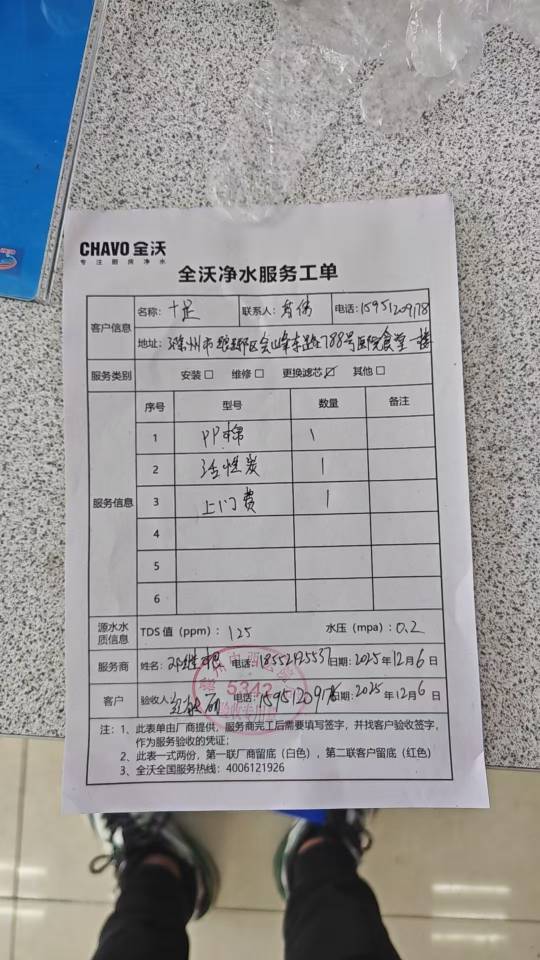 CHAVO 全沃
专注厨房净水
全沃净水服务工单
客户信息
名称：十足 联系人：肖伟 电话：15951209178
地址：滁州市琅琊区会峰东路788号医院食堂一楼
服务类别 安装□ 维修□ 更换滤芯☑ 其他□
服务信息
序号 型号 数量 备注
1 PP棉 1
2 活性炭 1
3 上门费 1
4
5
6
源水水质信息 TDS值（ppm）：125 水压（mpa）：0.2
服务商 姓名： 电话：18552425537 日期：2025年12月6日
客户 验收人： 电话：15951209178 日期：2025年12月6日
5342
注：1、此表单由厂商提供，服务商完工后需要填写签字，并找客户验收签字，
作为服务验收的凭证；
2、此表一式两份，第一联厂商留底（白色），第二联客户留底（红色）
3、全沃全国服务热线：4006121926